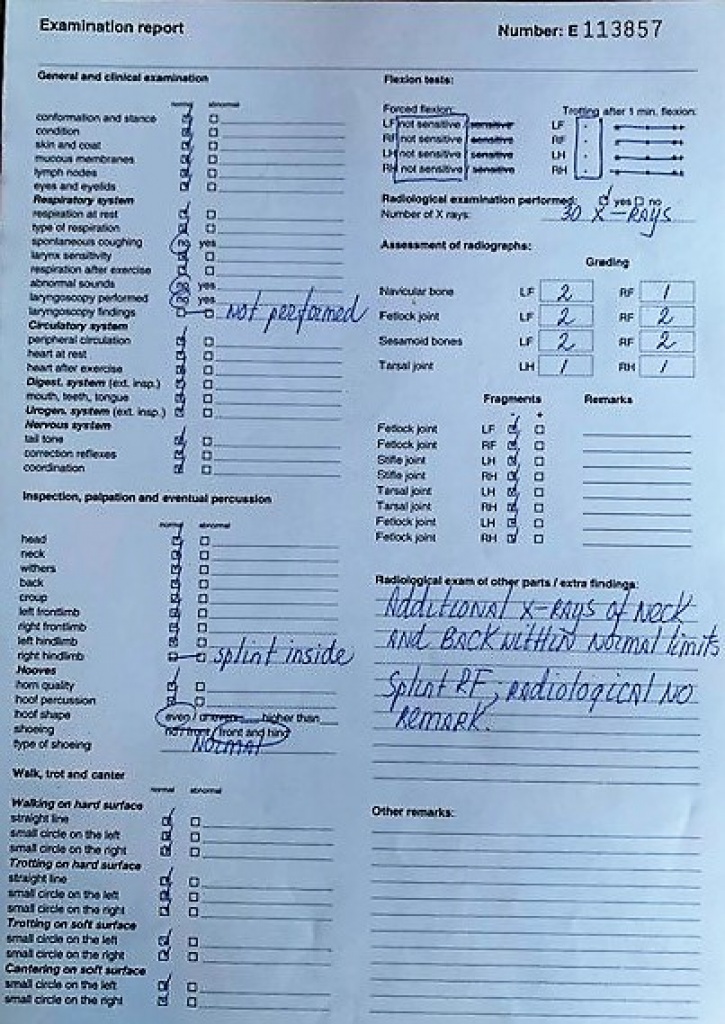 Examination report
Number: E 113857
General and clinical examination
normal abnormal
conformation and stance
condition
skin and coat
mucous membranes
lymph nodes
eyes and eyelids
Respiratory system
respiration at rest
type of respiration
spontaneous coughing no yes
larynx sensitivity
respiration after exercise
abnormal sounds no yes
laryngoscopy performed no yes
laryngoscopy findings Not performed
Circulatory system
peripheral circulation
heart at rest
heart after exercise
Digest. system (ext. insp.)
mouth, teeth, tongue
Urogen. system (ext. insp.)
Nervous system
tail tone
correction reflexes
coordination
Inspection, palpation and eventual percussion
normal abnormal
head
neck
withers
back
croup
left frontlimb
right frontlimb
left hindlimb
right hindlimb splint inside
Hooves
horn quality
hoof percussion
hoof shape even / uneven higher than
shoeing no / front / front and hind
type of shoeing NORMAL
Walk, trot and canter
normal abnormal
Walking on hard surface
straight line
small circle on the left
small circle on the right
Trotting on hard surface
straight line
small circle on the left
small circle on the right
Trotting on soft surface
small circle on the left
small circle on the right
Cantering on soft surface
small circle on the left
small circle on the right
Flexion tests:
Forced flexion: Trotting after 1 min. flexion:
LF not sensitive / sensitive LF - +
RF not sensitive / sensitive RF - +
LH not sensitive / sensitive LH - +
RH not sensitive / sensitive RH - +
Radiological examination performed: yes no
Number of X rays: 30 X-RAYS
Assessment of radiographs:
Grading
Navicular bone LF 2 RF 1
Fetlock joint LF 2 RF 2
Sesamoid bones LF 2 RF 2
Tarsal joint LH 1 RH 1
Fragments Remarks
- +
Fetlock joint LF
Fetlock joint RF
Stifle joint LH
Stifle joint RH
Tarsal joint LH
Tarsal joint RH
Fetlock joint LH
Fetlock joint RH
Radiological exam of other parts / extra findings:
ADDITIONAL X-RAYS of NECK
AND BACK WITHIN NORMAL limits
Splint RF, RADIOLOGICAL NO
REMARK.
Other remarks: